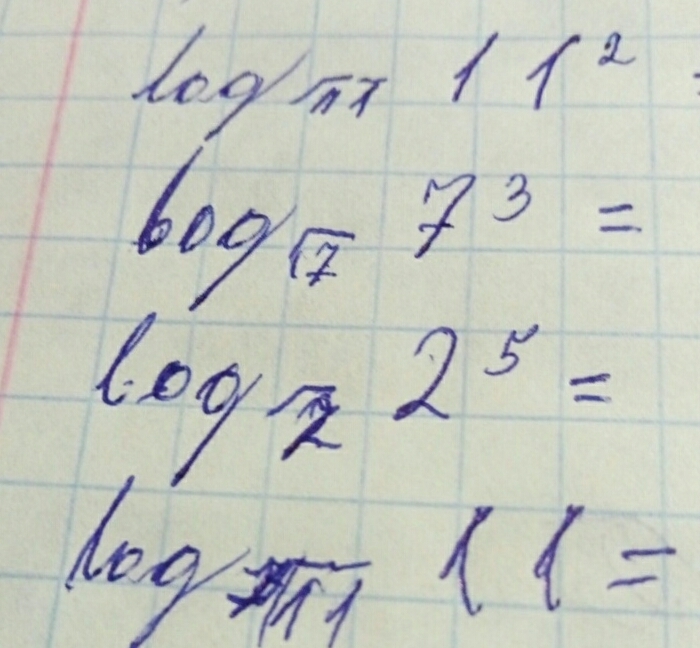 log √11 11² =
log √7 7³ =
log √2 2⁵ =
log √11 11 =